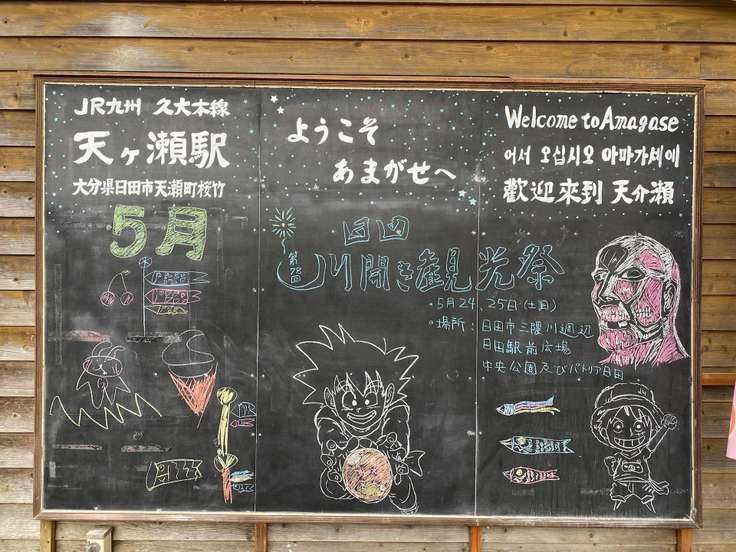 JR九州 久大本線
天ヶ瀬駅
大分県日田市天瀬町桜竹
5月
ようこそ
あまがせへ
日田
第78回
川開き観光祭
・5月24、25日(土日)
・場所：日田市三隈川週辺
日田駅前広場
中央公園及びパトリア日田
Welcome to Amagase
어서 오십시오 아마가세에
歡迎來到 天介瀬